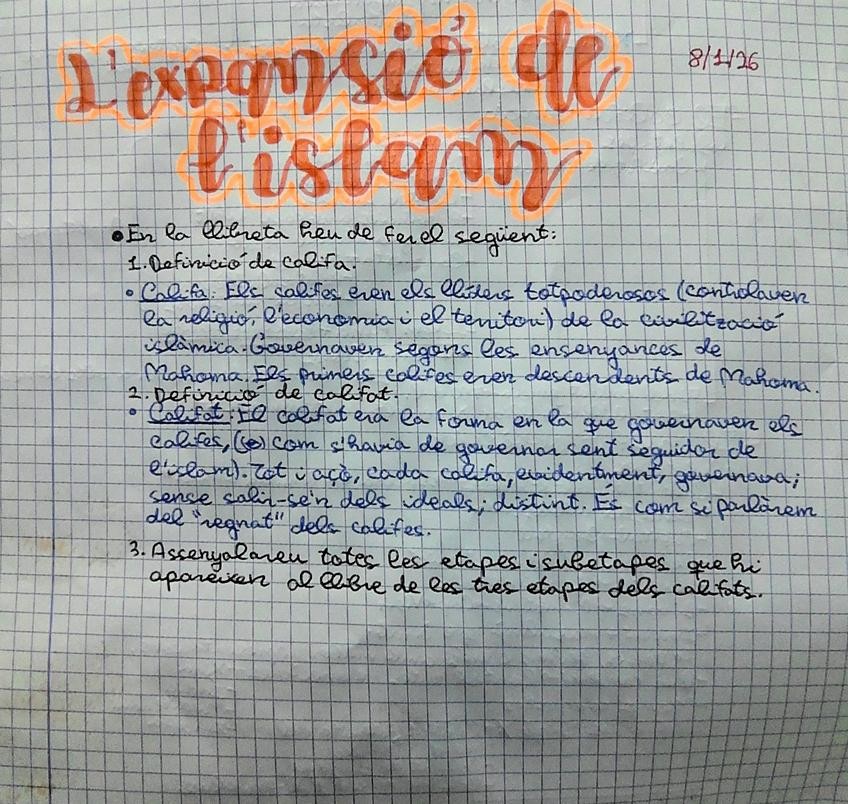 L'expansió de
l'islam
8/1/26
• En la llibreta heu de fer el següent:
1. Definició de califa.
• Califa: Els califes eren els líders totpoderosos (controlaven
la religió, l'economia i el territori) de la civilització
islàmica. Governaven segons les ensenyances de
Mahoma. Els primers califes eren descendents de Mahoma.
2. Definició de califat.
• Califat: El califat era la forma en la que governaven els
califes, (se) com s'havia de governar sent seguidor de
l'islam). Tot i açò, cada califa, evidentment, governava;
sense salir-se'n dels ideals; distint. És com si parlàrem
del "regnat" dels califes.
3. Assenyalareu totes les etapes i subetapes que hi
apareixen al llibre de les tres etapes dels califats.